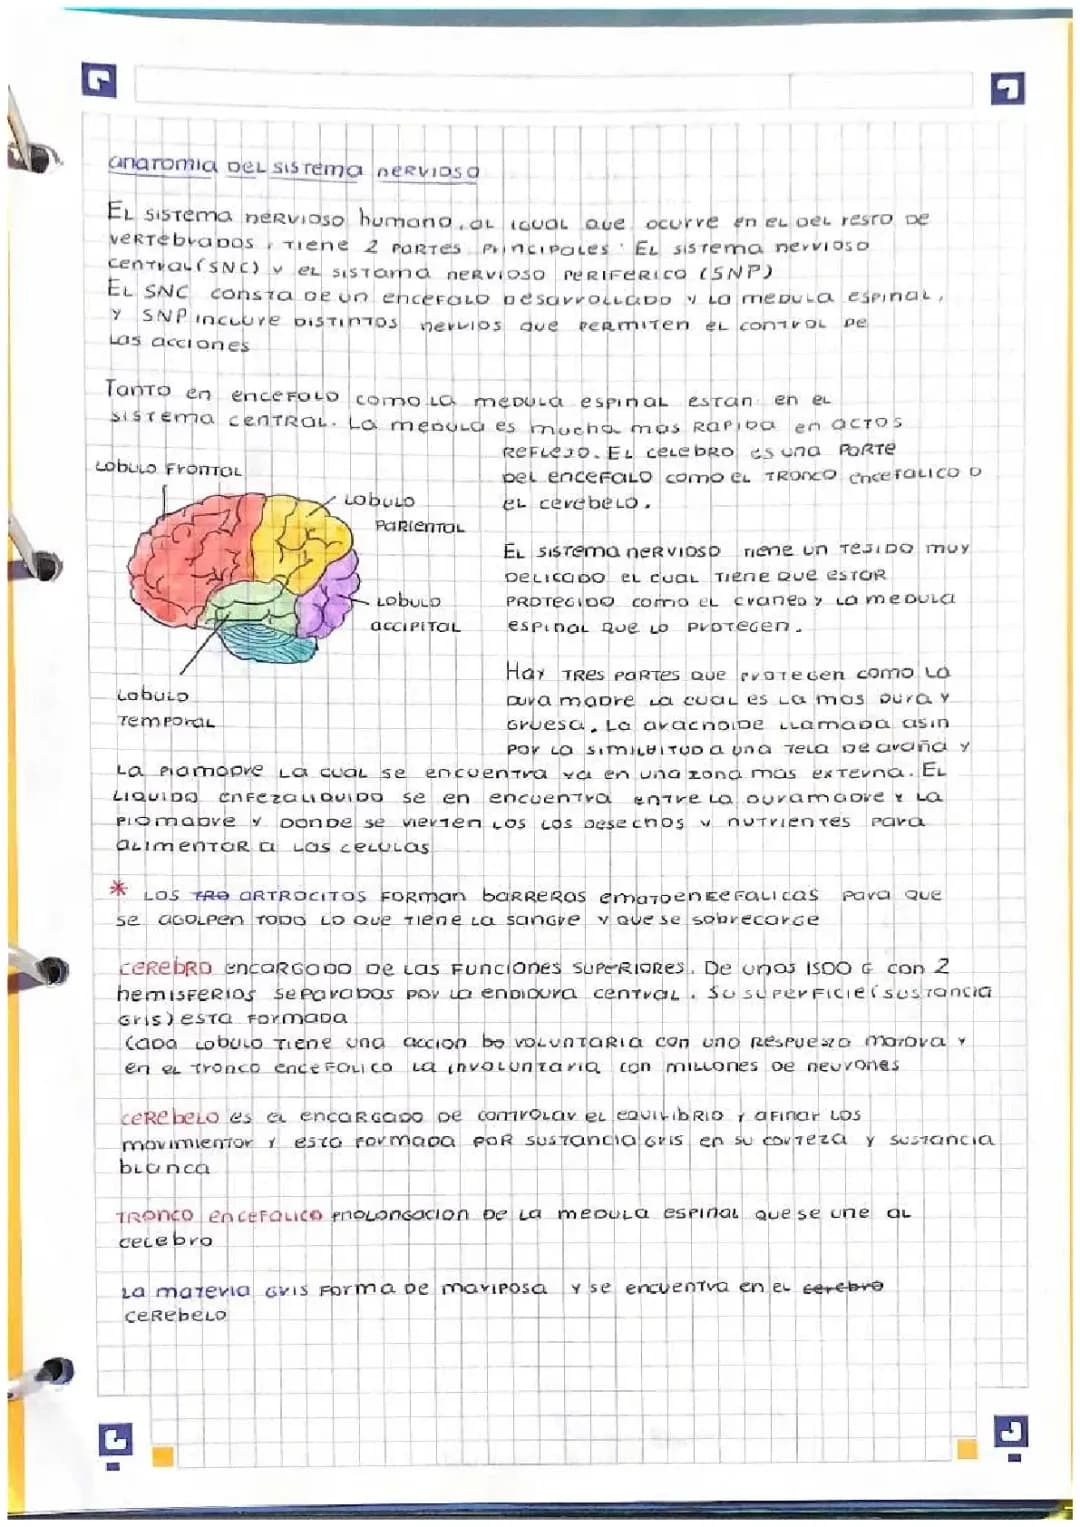 anatomia DEL SISTema nERVIOSO
EL SISTEMA nERVIOSO humano, aL IGUAL que ocurre en EL DEL resto DE
VERTebrados, TIENE 2 PARTES PRINCIPALES: EL SISTEMA nervioso
central (SNC) y EL SISTama nERVIOSO PERIFERICO (SNP)
EL SNC consta de un encefalo DesarroLLADO y La meDULa espinaL,
Y SNP incLuye DISTINTOS nervios que PERMITEN EL control DE
Las acciones
Tanto en encefoLo como La meDULa espinaL estan en eL
SISTEMA CENTRAL. La meDULa es mucha mas RAPIDA en acTOS
REFLEJO. EL ceLebro es una PARTE
DEL encefalo como eL TRONCO encefaLico o
eL cerebeLo.
Lobulo FronTaL
Lobulo
ParienTaL
EL SISTEMA nERVIOSO tiene un TEJIDO muy
DELICADO eL cuaL Tiene que esTar
PROTEGIDO como eL craneo y La meDULa
espinaL que Lo PROTEGEN.
Lobulo
accipiTaL
Hay TRES PARTES que PROTEGEN como La
Dura madre La cuaL es La mas Dura y
Gruesa. La aracnoide LLamada asin
Por La simiLitud a una TeLa de araña y
Lobulo
TemporaL
La Piamadre La cuaL se encuenTra ya en una zona mas exTerna. EL
LIQUIDO enfezaLiquido se en encuenTra enTre La duramadre y La
Piamadre y Donde se vierten Los Los Desechos y nuTrienTes Para
aLimenTar a Las ceLuLas
* LOS TRO ARTROCITOS FORman barreras ematoencefaLicas para que
se agoLpen Todo Lo que Tiene La sangre y que se sobrecarge
CEREBRO encargado de Las Funciones SUPERIORES. De unos 1500 G con 2
hemisferios separados por La endidura centraL. Su superficie (sustancia
Gris) esta Formada
Cada Lobulo Tiene una accion bo voLunTaria con uno Respuesta motora y
en eL Tronco encefaLico La invoLunTaria con miLLones de neuronas
cerebeLo es eL encargado de controLar eL equiLibrio y afinar Los
movimientor y esta Formada POR sustancia Gris en su corteza y sustancia
bLanca
TRONCO encefaLico ProLongacion De La meDULa espinaL que se une aL
ceLebro
La materia Gris Forma De mariposa y se encuenTra en eL cerebro
cerebeLo